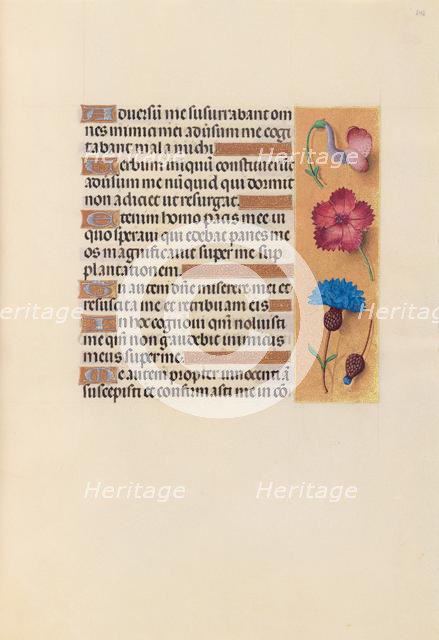 Aduersū me susurrabant om
nes inimici mei aduersum me cogi
tabant mala michi
Verbum iniquū constituerūt
aduersum me nūquid qui dormit
non adiciet ut resurgat
Etenim homo pacis mee in
quo speraui qui edebat panes me
os magnificauit super me sup
plantationem
Tu autem dñe miserere mei et
resuscita me et retribuam eis
In hoc cognoui qm̄ voluisti
me qm̄ non gaudebit inimicus
meus super me
Me autem propter innocentiā
suscepisti et confirmasti me in cō
Heritage
Heritage
Heritage
Heritage
Heritage
Heritage
Heritage
Heritage